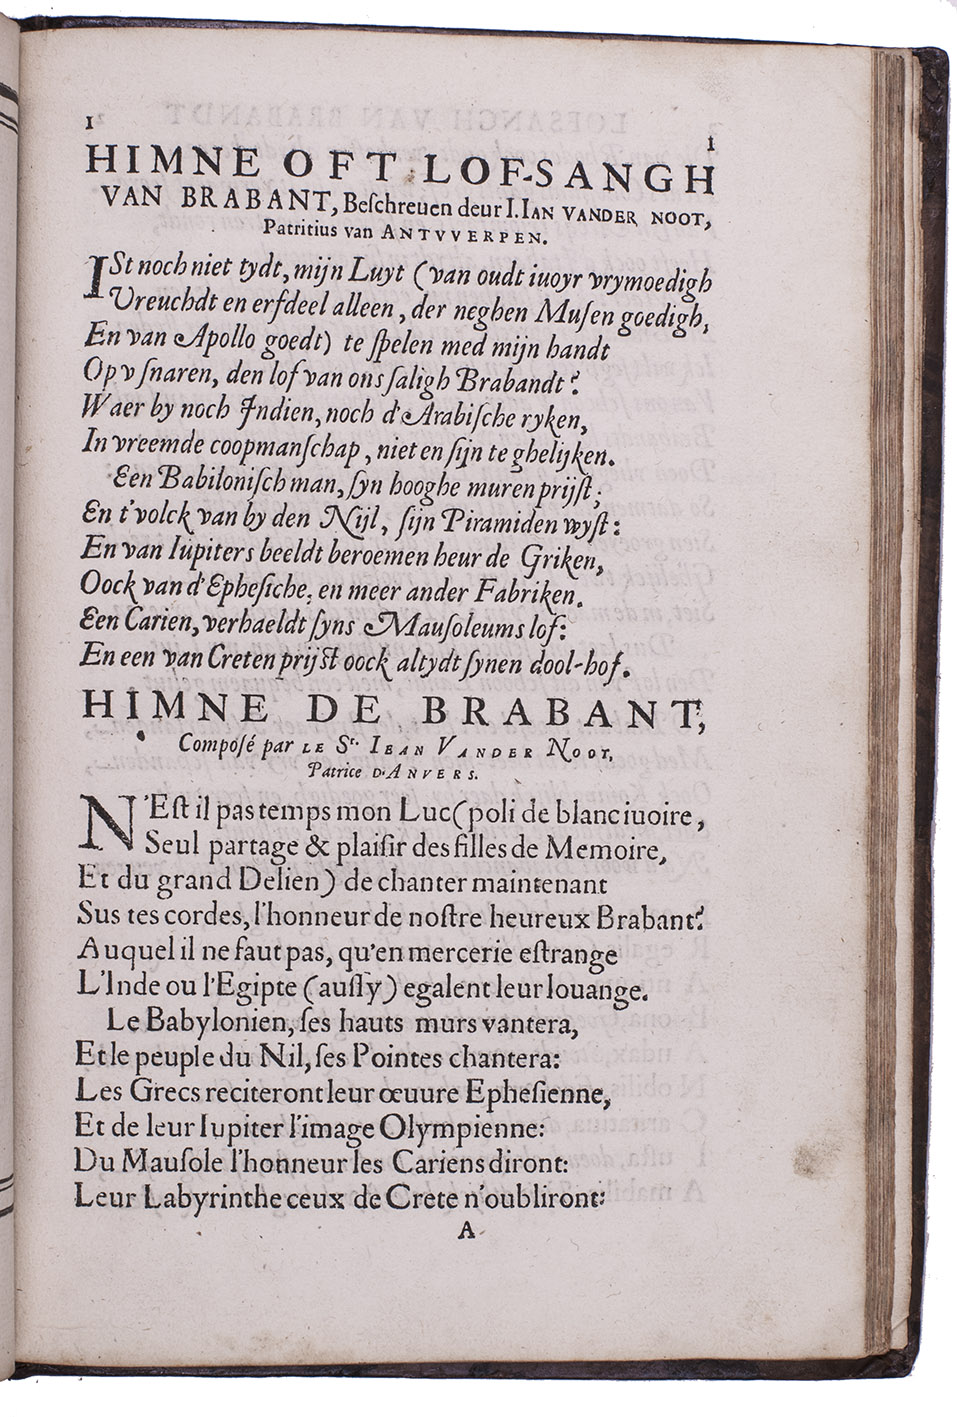 1
1
HIMNE OFT LOF-SANGH
VAN BRABANT, Beſchreuen deur I. IAN VANDER NOOT,
Patritius van ANTVVERPEN.
ISt noch niet tydt, mijn Luyt (van oudt iuoyr vrymoedigh
Vreuchdt en erfdeel alleen, der neghen Muſen goedigh,
En van Apollo goedt) te ſpelen med mijn handt
Op v ſnaren, den lof van ons ſaligh Brabandt?
Waer by noch Indien, noch d'Arabiſche ryken,
In vreemde coopmanſchap, niet en ſijn te ghelijken.
Een Babiloniſch man, ſyn hooghe muren prijſt;
En t'volck van by den Nijl, ſijn Piramiden wyſt:
En van Iupiters beeldt beroemen heur de Griken,
Oock van d'Epheſiche, en meer ander Fabriken.
Een Carien, verhaeldt ſyns Mauſoleums lof:
En een van Creten prijſt oock altydt ſynen dool-hof.
HIMNE DE BRABANT,
Compoſé par LE Sr. IEAN VANDER NOOT,
Patrice D'ANVERS.
N'Eſt il pas temps mon Luc (poli de blanc iuoire,
Seul partage & plaiſir des filles de Memoire,
Et du grand Delien) de chanter maintenant
Sus tes cordes, l'honneur de noſtre heureux Brabant?
Auquel il ne faut pas, qu'en mercerie eſtrange
L'Inde ou l'Egipte (auſſy) egalent leur louange.
Le Babylonien, ſes hauts murs vantera,
Et le peuple du Nil, ſes Pointes chantera:
Les Grecs reciteront leur œuure Epheſienne,
Et de leur Iupiter l'image Olympienne:
Du Mauſole l'honneur les Cariens diront:
Leur Labyrinthe ceux de Crete n'oubliront:
A